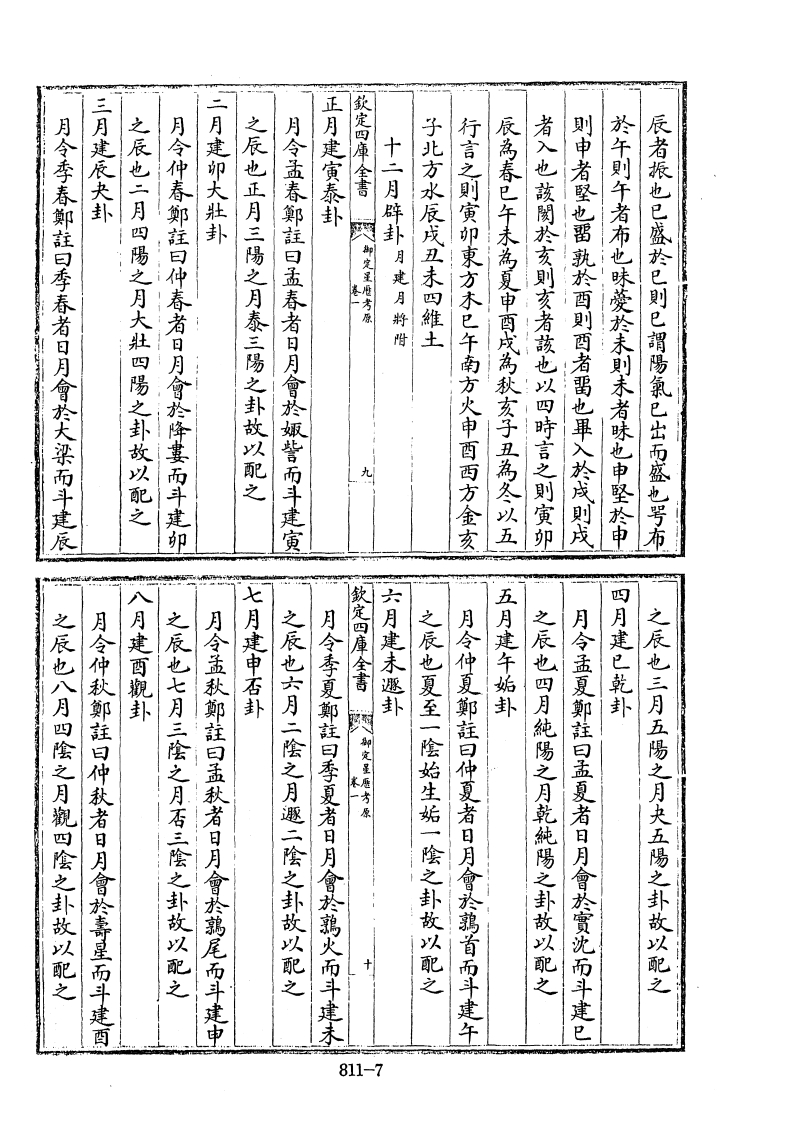 辰者振也巳盛於巳則巳謂陽氣巳出而盛也咢布
於午則午者布也昧薆於未則未者昧也申堅於申
則申者堅也畱孰於酉則酉者畱也畢入於戌則戌
者入也該閡於亥則亥者該也以四時言之則寅卯
辰為春巳午未為夏申酉戌為秋亥子丑為冬以五
行言之則寅卯東方木巳午南方火申酉西方金亥
子北方水辰戌丑未四維土
十二月辟卦月建月將附
欽定四庫全書
御定星厯考原
卷一
九
正月建寅泰卦
月令孟春鄭註曰孟春者日月會於娵訾而斗建寅
之辰也正月三陽之月泰三陽之卦故以配之
二月建卯大壯卦
月令仲春鄭註曰仲春者日月會於降婁而斗建卯
之辰也二月四陽之月大壯四陽之卦故以配之
三月建辰夬卦
月令季春鄭註曰季春者日月會於大梁而斗建辰
之辰也三月五陽之月夬五陽之卦故以配之
四月建巳乾卦
月令孟夏鄭註曰孟夏者日月會於實沈而斗建巳
之辰也四月純陽之月乾純陽之卦故以配之
五月建午姤卦
月令仲夏鄭註曰仲夏者日月會於鶉首而斗建午
之辰也夏至一陰始生姤一陰之卦故以配之
六月建未遯卦
欽定四庫全書
御定星厯考原
卷一
十
月令季夏鄭註曰季夏者日月會於鶉火而斗建未
之辰也六月二陰之月遯二陰之卦故以配之
七月建申否卦
月令孟秋鄭註曰孟秋者日月會於鶉尾而斗建申
之辰也七月三陰之月否三陰之卦故以配之
八月建酉觀卦
月令仲秋鄭註曰仲秋者日月會於壽星而斗建酉
之辰也八月四陰之月觀四陰之卦故以配之
811-7